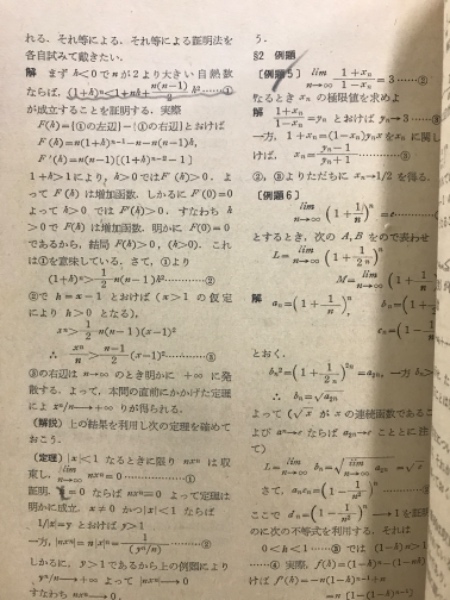 れる。それ等による、それ等による証明法を
各自試みて戴きたい。
解 まず h<0でnが2より大きい自然数
ならば, (1+h)ⁿ<1+nh+n(n-1)/2 h²……①
が成立することを証明する。実際
F(h)={①の左辺}-{①の右辺}とおけば
F(h)=n(1+h)ⁿ⁻¹-n-n(n-1)h,
F'(h)=n(n-1)[(1+h)ⁿ⁻²-1]
1+h>1により, h>0ではF'(h)>0. よ
って F(h) は増加函数. しかるに F(0)=0
よって h>0 では F(h)>0. すなわち h
>0で F(h) は増加函数. 明かに F(0)=0
であるから, 結局 F(h)>0, (h>0). これ
は①を意味している. さて, ①より
(1+h)ⁿ>1/2 n(n-1)h²…………②
②で h=x-1 とおけば (x>1 の仮定
により h>0 となる),
xⁿ>1/2 n(n-1)(x-1)²
∴ xⁿ/n>(n-1)/2 (x-1)²…………③
③の右辺は n→∞ のとき明かに +∞ に発
散する. よって, 本問の直前にかかげた定理
によ xⁿ/n→+∞ りが得られる.
(解説) 上の結果を利用し次の定理を確めて
おこう.
(定理) |x|<1 なるときに限り nxⁿ は収
束し, lim n→∞ nxⁿ=0 …………①
証明. =0 ならば nxⁿ=0 よって定理は
明かに成立. x≠0 かつ|x|<1 ならば
1/|x|=y とおけば y>1
一方, |nxⁿ|=n|x|ⁿ=1/(yⁿ/n)…………②
しかるに, y>1であるから上の例題により
yⁿ/n→+∞ よって |nxⁿ|→0
すなわち nxⁿ→0.
5.
§2 例題
[例題5] lim n→∞ (1+xₙ)/(1-xₙ)=3……②
なるとき xₙ の極限値を求めよ
解 (1+xₙ)/(1-xₙ)=yₙ とおけば yₙ→3……
一方, 1+xₙ=(1-xₙ)yₙをxₙ に関し
けば, xₙ=(yₙ-1)/(yₙ+1)…………③
②, ③よりただちに xₙ→1/2 を得る.
[例題6]
lim n→∞ (1+1/n)ⁿ=e
とするとき, 次の A, B をので表わせ
L=lim n→∞ (1+1/2n)ⁿ
M=lim n→∞ (1+
解 aₙ=(1+1/n)ⁿ, bₙ=(1+
cₙ=(1-
とおく.
bₙ²=(1+1/2n)²ⁿ=a₂ₙ, 一方
∴ bₙ=√a₂ₙ
よって (√x が x の連続函数である
よび aₙ→e ならば a₂ₙ→e ことに注
て)
L=lim n→∞ bₙ=√lim n→∞ a₂ₙ=√e
さて, aₙcₙ=(1-1/n²)ⁿ
ここで dₙ=(1-1/n²)ⁿ→1を証
のに次の不等式を利用する. それは
0<h<1……③ では (1-h)ⁿ>1
……④ 実際, f(h)=(1-h)ⁿ-(1-nh)
けば f'(h)=-n(1-h)ⁿ⁻¹+n
=n{1-(1-h)